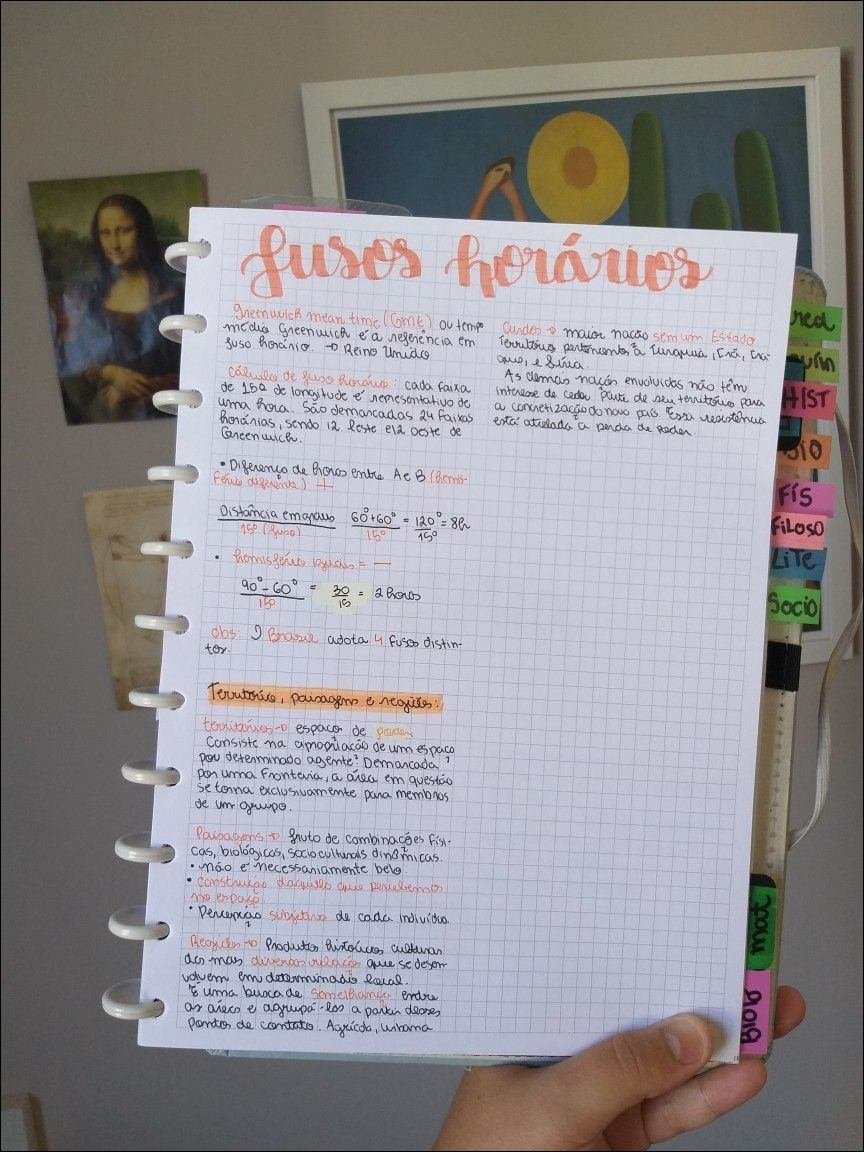 fusos horários
Greenwich mean time (GMT) ou tempo
médio Greenwich é a referência em
fuso horário. → Reino Unido
Cálculo de fuso horário: cada faixa
de 15º de longitude é representativo de
uma hora. São demarcadas 24 faixas
horárias, sendo 12 leste e 12 oeste de
Greenwich.
• Diferença de horas entre A e B (hemis-
fério diferente) +
Distância em graus 60º+60º = 120º = 8h
15º (fuso) 15º 15º
• hemisfério iguais = —
90º - 60º = 30 = 2 horas
15º 15
obs: O Brasil adota 4 fusos distin-
tos.
Território, paisagens e regiões:
territórios → espaço de poder.
Consiste na apropriação de um espaço
por determinado agente. Demarcada
por uma fronteira, a área em questão
se torna exclusivamente para membros
de um grupo.
Paisagens → fruto de combinações físi-
cas, biológicas, socioculturais dinâmicas.
• não é necessariamente belo.
• Construção daquilo que percebemos
no espaço
• Percepção subjetiva de cada indivíduo.
Regiões → Produtos históricos culturas
das mais diversas relações que se desen
volvem em determinado local.
É uma busca de semelhança entre
as áreas e agrupá-los a partir desses
pontos de contato. Agrícola, urbana
Curdos → maior nação sem um Estado
Território pertencente à Turquia, Irã, Ira-
que, e Síria.
As demais nações envolvidas não têm
interesse de ceder parte de seu território para
a concretização do novo país. Essa resistência
está atrelada à perda de poder.
red
quím
HIST
BIO
FÍS
FiLoso
LiTe
Socio
mat
Biolo